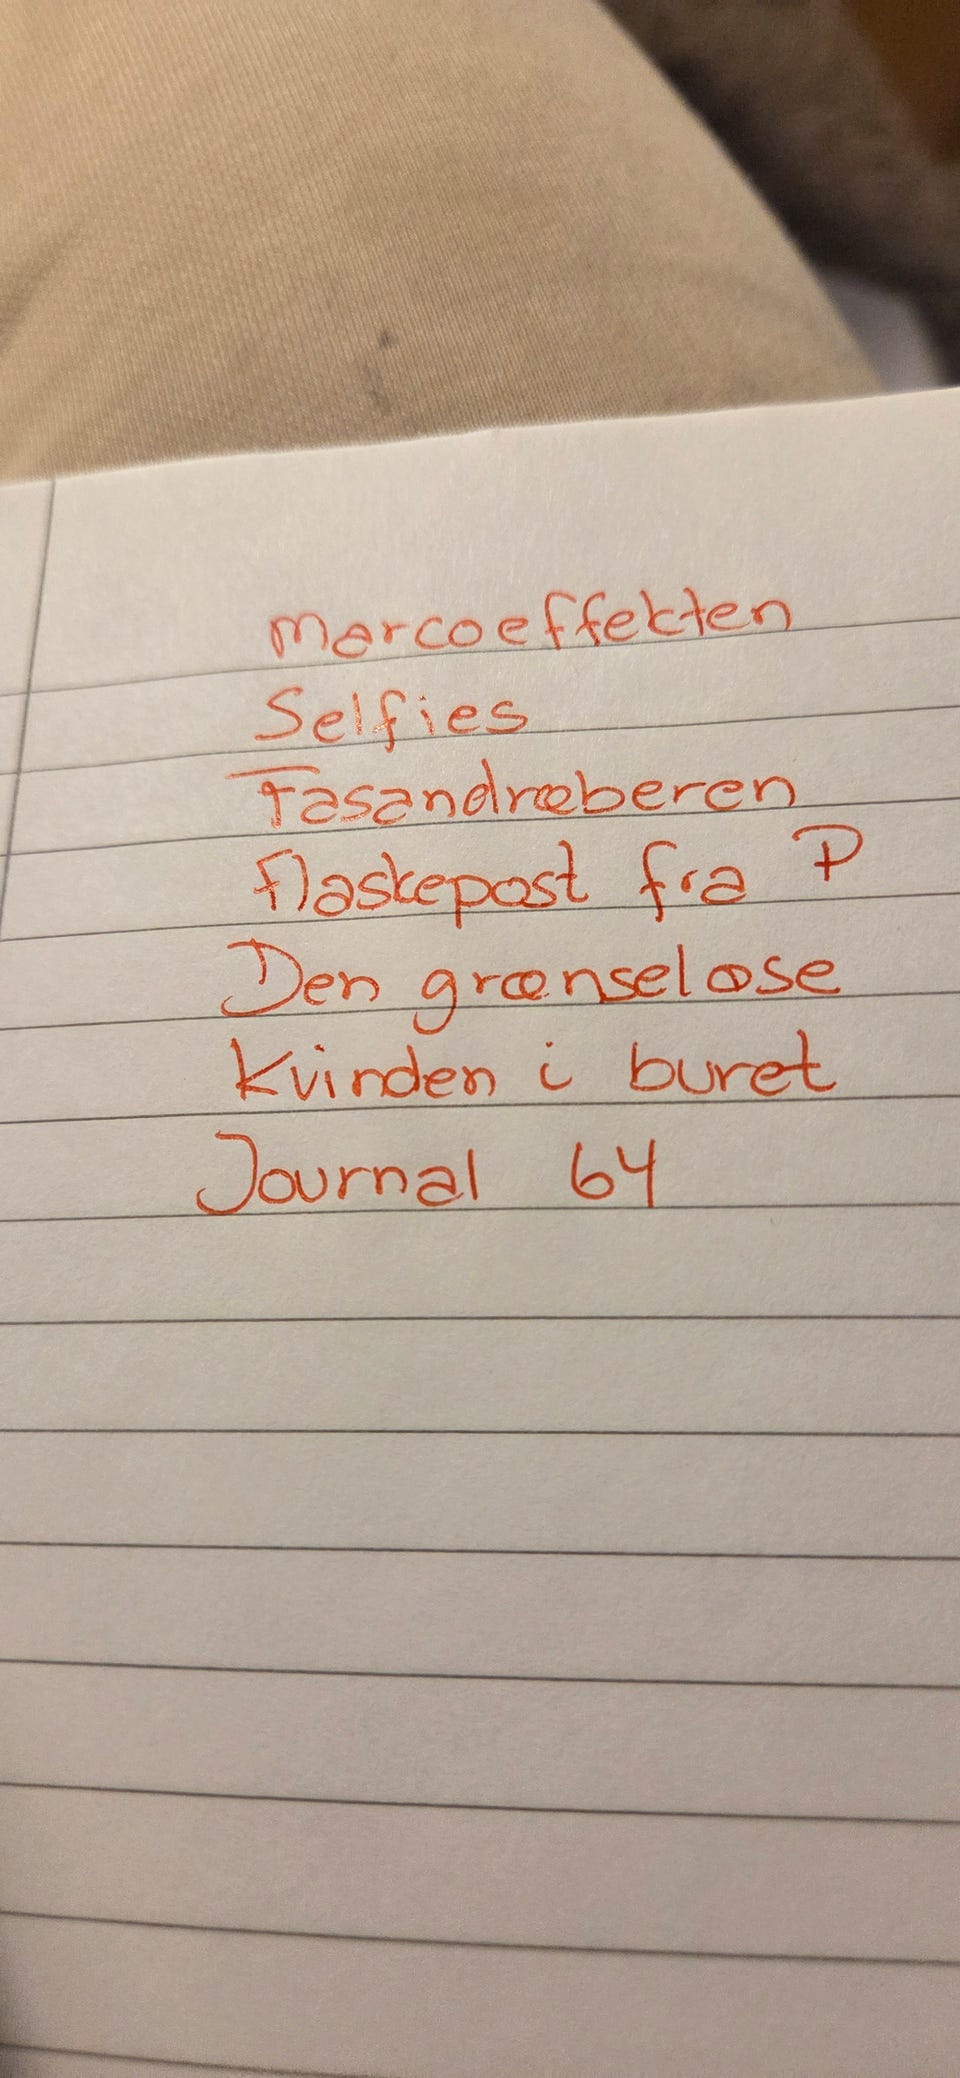 Marcoeffekten
Selfies
Fasandræberen
flaskepost fra P
Den grænseløse
Kvinden i buret
Journal 64